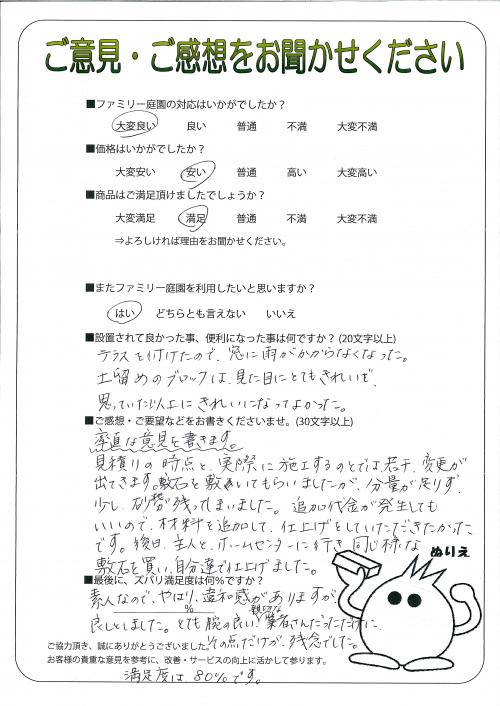 ご意見・ご感想をお聞かせください
■ファミリー庭園の対応はいかがでしたか？
大変良い 良い 普通 不満 大変不満
■価格はいかがでしたか？
大変安い 安い 普通 高い 大変高い
■商品はご満足頂けましたでしょうか？
大変満足 満足 普通 不満 大変不満
⇒よろしければ理由をお聞かせください。
■またファミリー庭園を利用したいと思いますか？
はい どちらとも言えない いいえ
■設置されて良かった事、便利になった事は何ですか？(20文字以上)
テラスを付けたので、窓に雨がかからなくなった。
土留めのブロックは、見た目にとてもきれいで、
思っていた以上にきれいになってよかった。
■ご感想・ご要望などをお書きくださいませ。(30文字以上)
率直な意見を書きます。
見積りの時点と、実際に施工するのとでは、若干、変更が
出てきます。敷石を敷いてもらいましたが、分量が足りず、
少し、砂が残ってしまいました。追加代金が発生しても
いいので、材料を追加して、仕上げをしていただきたかった
です。後日、主人と、ホームセンターに行き、同じ様な
敷石を買い、自分達で仕上げました。
ぬりえ
■最後に、ズバリ満足度は何%ですか？
素人なので、やはり、違和感がありますが、
%
良しとしました。とても腕の良い、親切な業者さんだっただけに、
その点だけが、残念でした。
ご協力頂き、誠にありがとうございました。
お客様の貴重な意見を参考に、改善・サービスの向上に活かして参ります。
満足度は80%です。